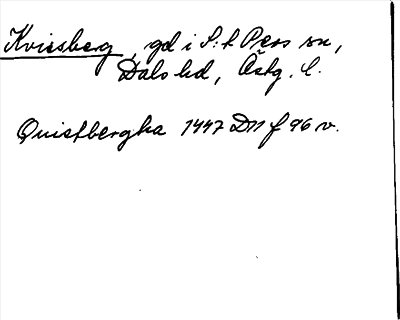 Kviesberg, gd i S:t Pers sn,
Dals hd, Östg. l.
Quistbergha 1447 D11 f 96 v.